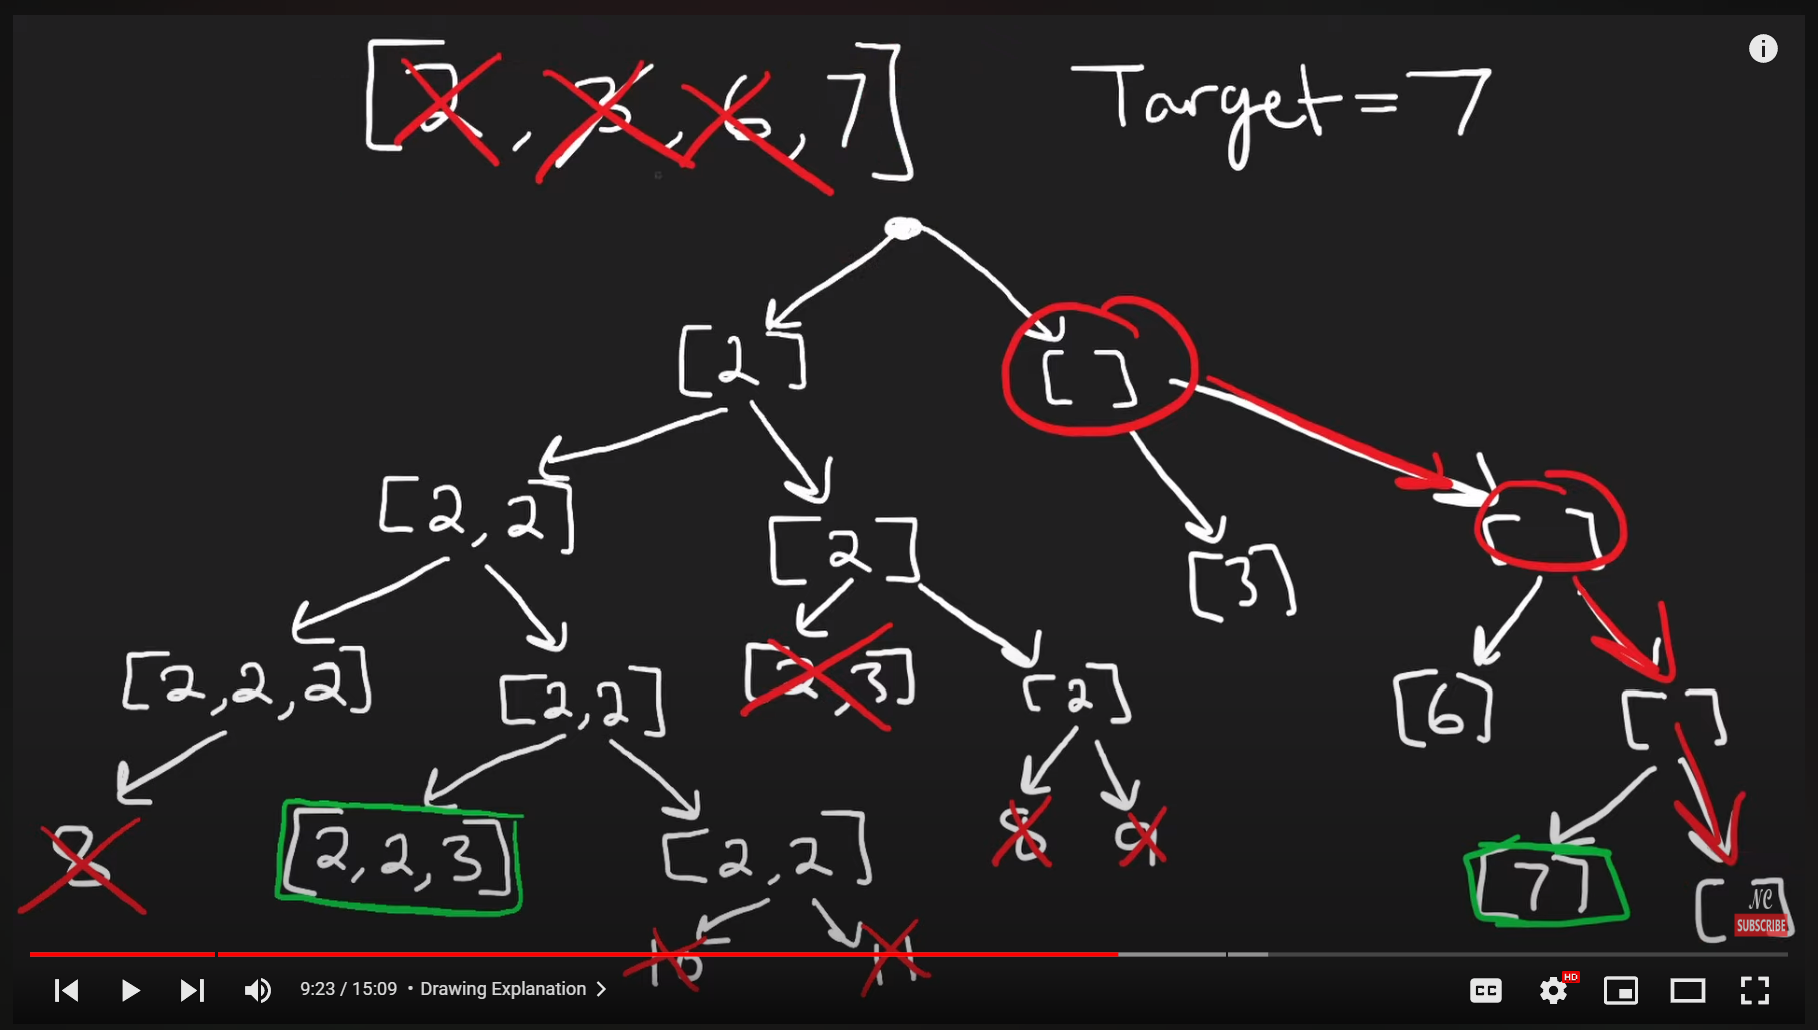 [2, 3, 6, 7] Target=7
[2] [ ]
[2,2] [2] [3] [ ]
[2,2,2] [2,2] [2,3] [2] [6] [ ]
8 [2,2,3] [2,2] 8 9 [7] [ ]
NC
SUBSCRIBE
10 11
9:23 / 15:09 • Drawing Explanation >
CC HD